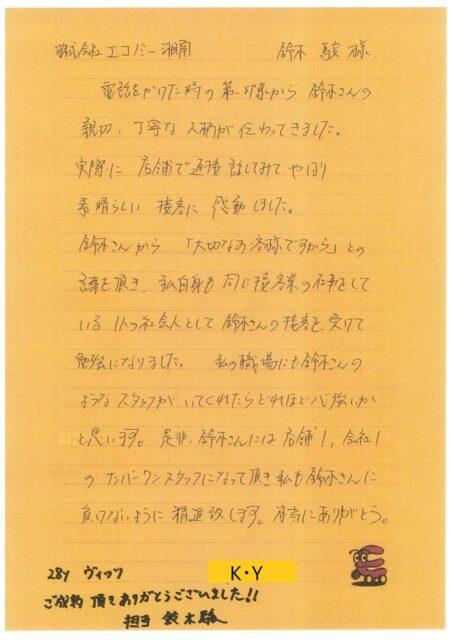 株式会社エコノミー湘南 鈴木 駿様
電話をかけた時の第一印象から 鈴木さんの
親切、丁寧な人柄が伝わってきました。
実際に 店舗で直接話してみて やはり
素晴らしい 接客に 感動しました。
鈴木さんから、「大切なお客様ですから」との
言葉を頂き、私自身も 同じ接客業の仕事をして
いる 1人の社会人として 鈴木さんの接客を受けて
勉強になりました。 私の職場にも鈴木さんの
ような スタッフがいてくれたらどれほど心強いか
と思います。是非、鈴木さんには店舗1、会社1
の ナンバーワンスタッフになって頂き私も鈴木さんに
負けないように 精進致します。本当にありがとう。
28y ヴィッツ K・Y
ご成約 頂きありがとうございました!!
担当 鈴木駿